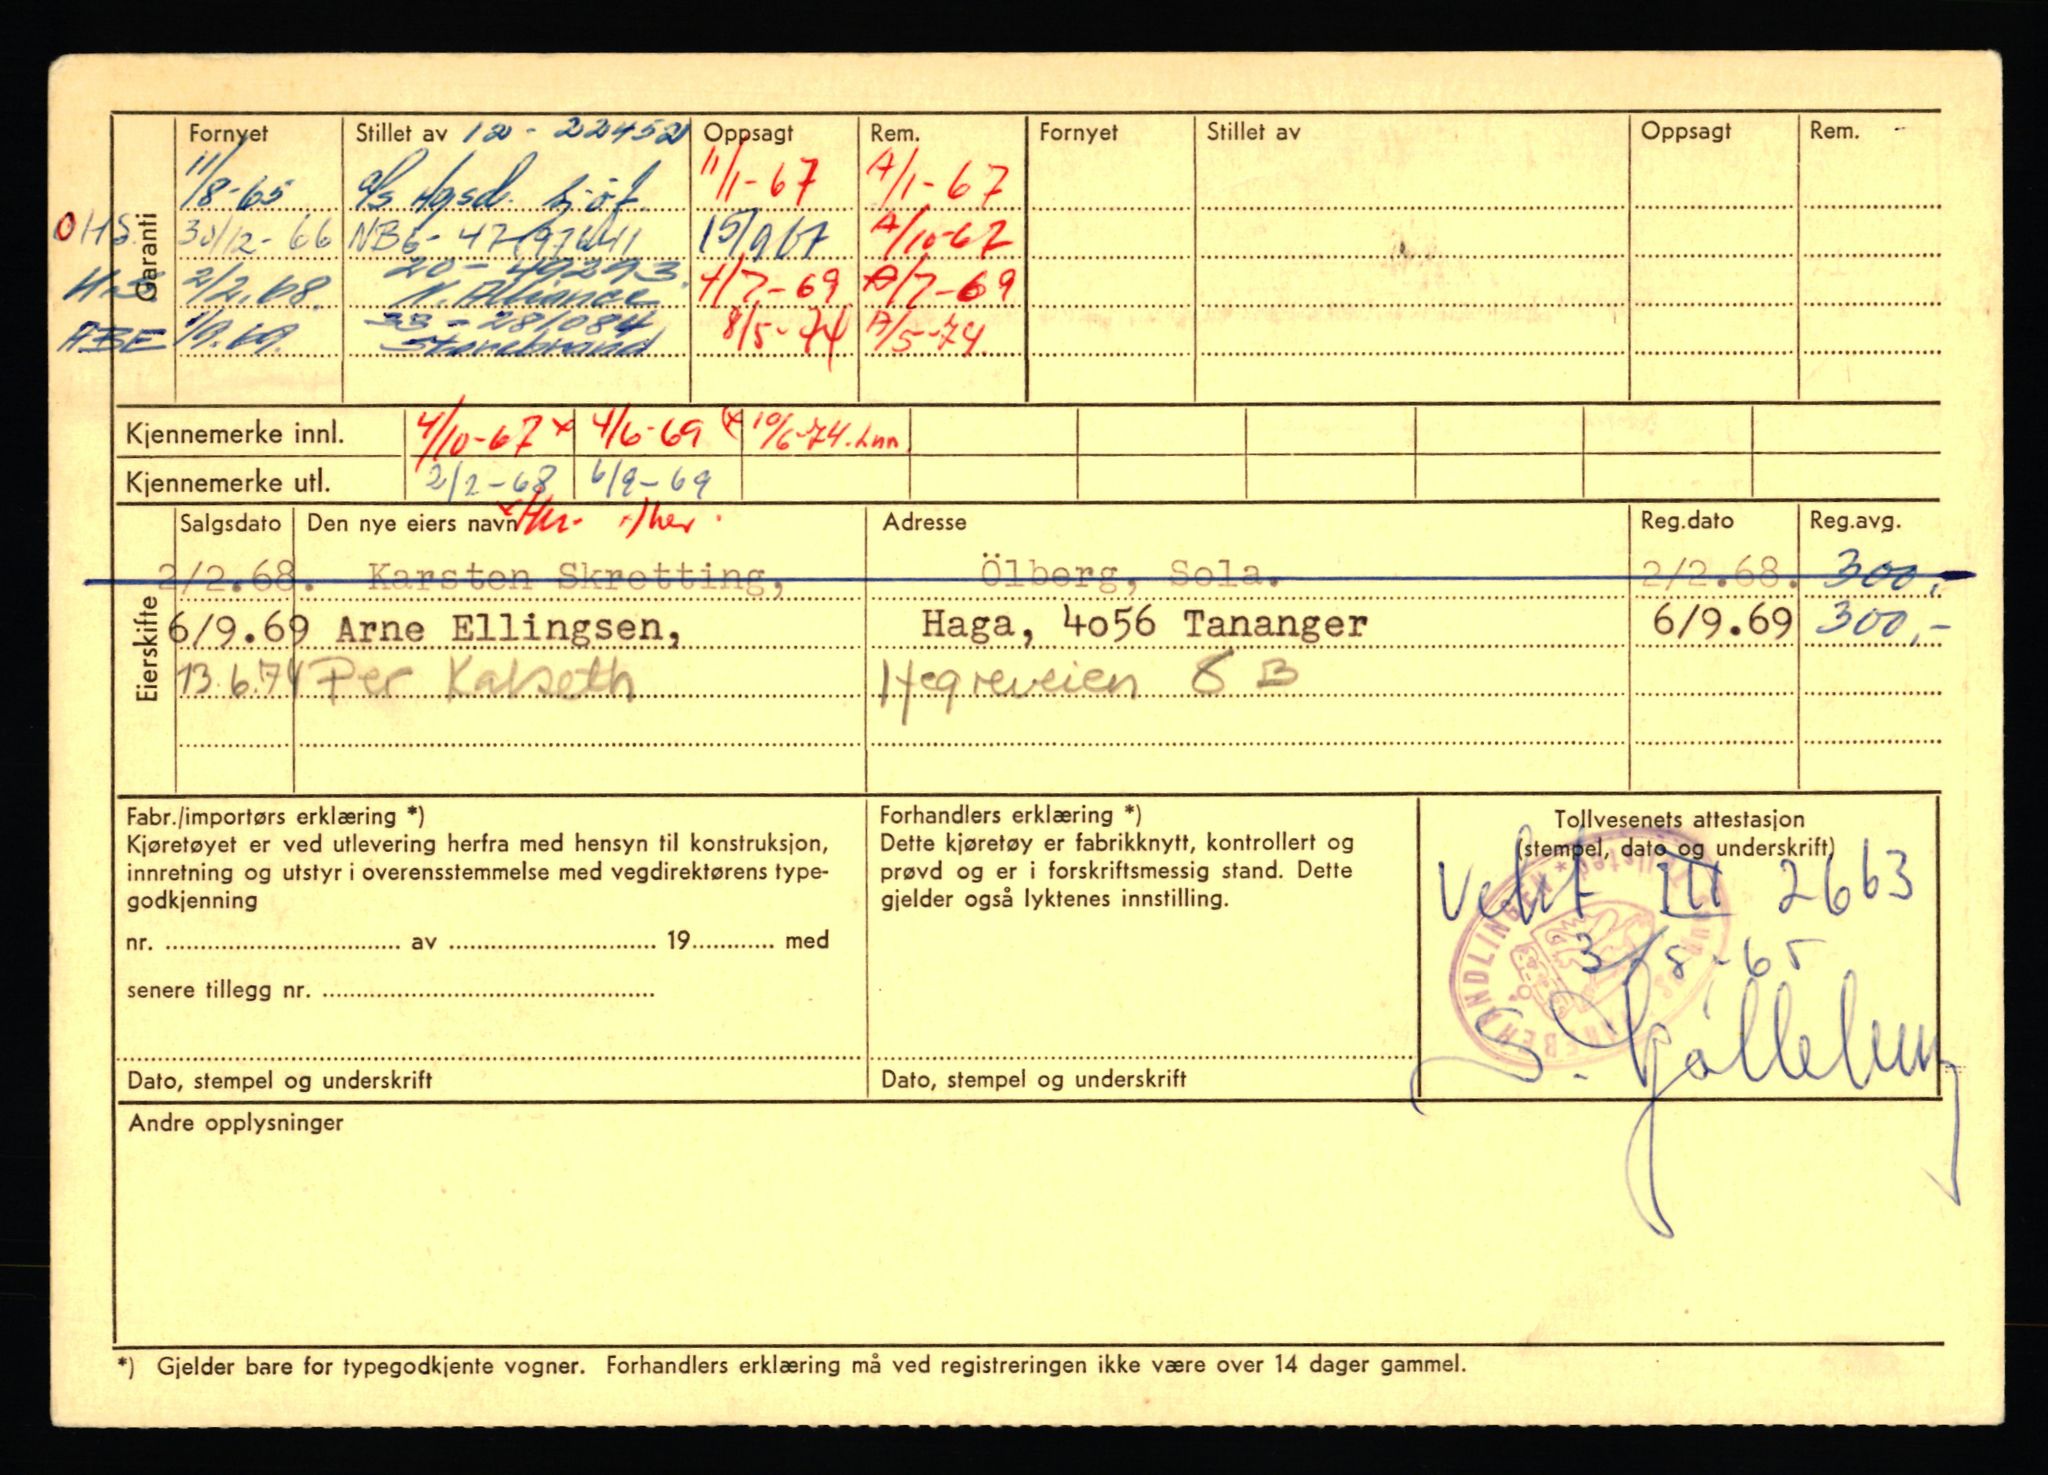 Garanti
Fornyet Stillet av 12 - 22452 Oppsagt Rem. Fornyet Stillet av Oppsagt Rem.
11/8-65 11/1-67 A/1-67
30/12-66 15/9 67 A/10-67
2/2.68. 20-49293. 4/7-69 A/7-69
N. Alliance
ABE 1/9.69. 33-281084 8/5-74 A/5-74.
Storebrand
Kjennemerke innl. 4/10-67 x 4/6-69 (x 10/6-74.
Kjennemerke utl. 2/2-68 6/9-69
Eierskifte
Salgsdato Den nye eiers navn Adresse Reg.dato Reg.avg.
2/2.68. Karsten Skretting, Ölberg, Sola. 2/2.68. 300,-
6/9.69 Arne Ellingsen, Haga, 4o56 Tananger 6/9.69 300,-
13.6.74 Per Kalseth Hegreveien 8 B
Fabr./importørs erklæring *)
Kjøretøyet er ved utlevering herfra med hensyn til konstruksjon,
innretning og utstyr i overensstemmelse med vegdirektørens type-
godkjenning
nr. .......... av .......... 19.......... med
senere tillegg nr. ..........
Dato, stempel og underskrift
Forhandlers erklæring *)
Dette kjøretøy er fabrikknytt, kontrollert og
prøvd og er i forskriftsmessig stand. Dette
gjelder også lyktenes innstilling.
Dato, stempel og underskrift
Tollvesenets attestasjon
(stempel, dato og underskrift)
III 2663
3/8-65
Andre opplysninger
*) Gjelder bare for typegodkjente vogner. Forhandlers erklæring må ved registreringen ikke være over 14 dager gammel.